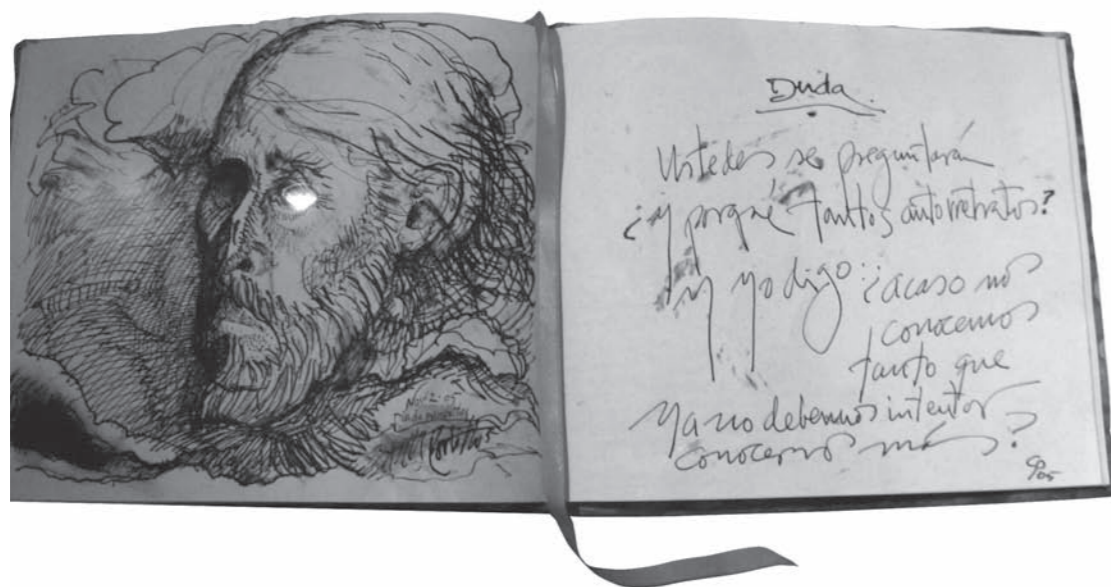 Nov 2-05
Duda
Ustedes se preguntarán
¿y porqué tantos autorretratos?
y yo digo: ¿acaso nos
conocemos
tanto que
ya no debemos intentar
conocernos más?
05